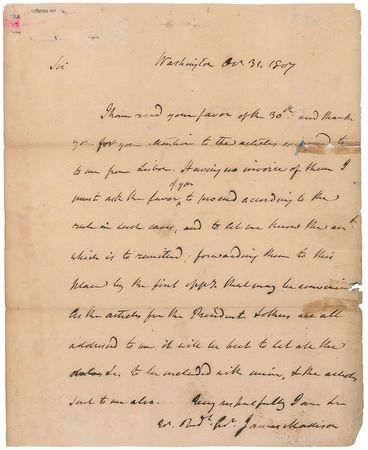 Washington Oct. 31. 1807
Sir
I have recd your favor of the 30th: and thank
you for your attention to the articles to
to me from Lisbon. Having no invoice of them I
of you
must ask the favor to proceed according to the
rule in such cases, and to let me know the amt
which is to remitted; forwarding them to this
place by the first oppy. that may be convenient
As the articles for the President & others are all
addressed to me, it will be best to let all the
duties &c. to be included with mine, & the articles
sent to me also. Very respectfully I am Sir
yr. Obedt. Servt. James Madison